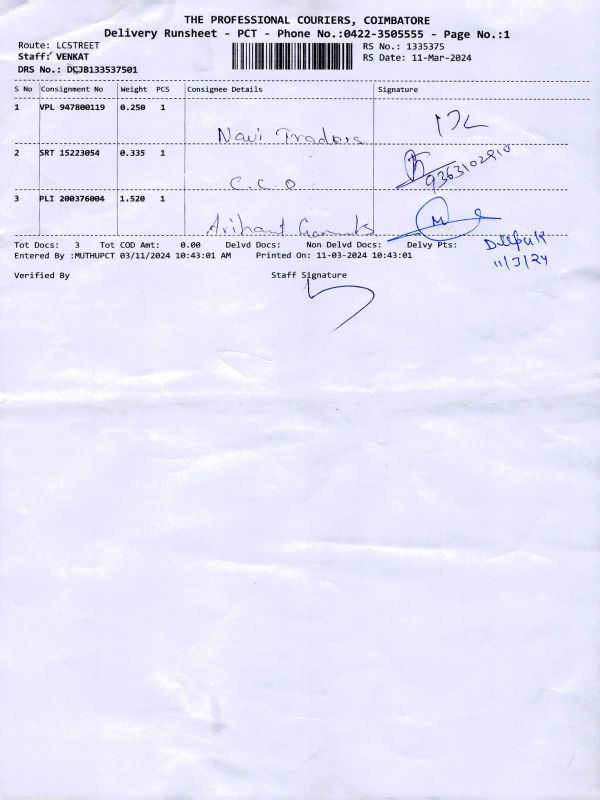 THE PROFESSIONAL COURIERS, COIMBATORE
Delivery Runsheet - PCT - Phone No.:0422-3505555 - Page No.:1
Route: LCSTREET RS No.: 1335375
Staff: VENKAT RS Date: 11-Mar-2024
DRS No.: DCJB133537501
S No Consignment No Weight PCS Consignee Details Signature
1 VPL 947800119 0.250 1
Navi Traders
2 SRT 15223054 0.335 1
9363102910
C.C.O
3 PLI 200376004 1.520 1
M
Arihant
Tot Docs: 3 Tot COD Amt: 0.00 Delvd Docs: Non Delvd Docs: Delvy Pts:
Deepak
Entered By :MUTHUPCT 03/11/2024 10:43:01 AM Printed On: 11-03-2024 10:43:01
11/3/24
Verified By Staff Signature